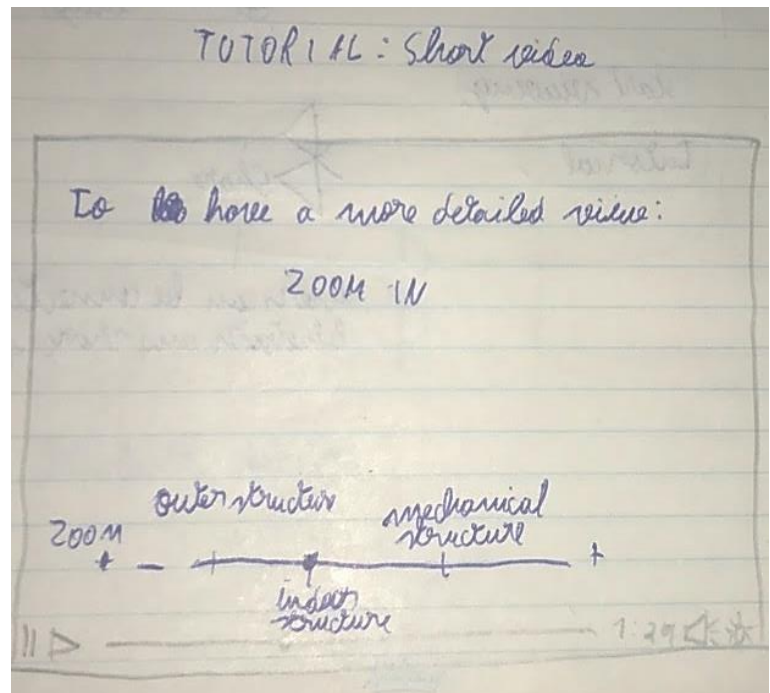 TUTORIAL: Short video
To have a more detailed view:
ZOOM IN
outer structur
mechanical
structure
ZOOM
- +
structure
1:29